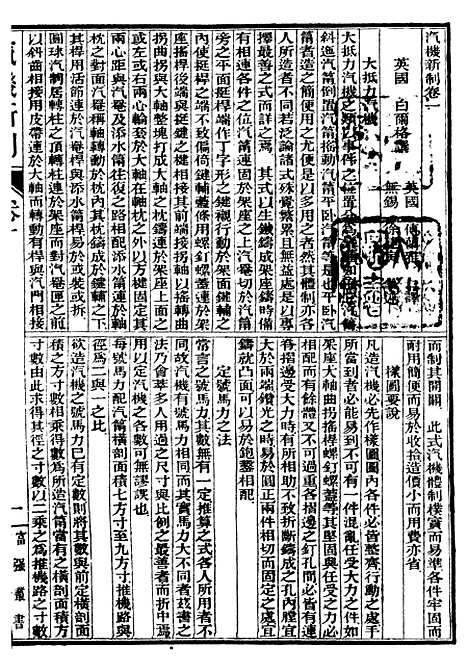 汽機新制卷一
英國 白爾格撰
英國 傅蘭雅 口譯
無錫 徐建寅
大抵力汽機
大抵力汽機之類以事件之位置分為
斜進汽筩倒置汽筩搖動汽筩平臥汽筩等是也平臥汽
筩者造之簡便用之尤便是以多用之者然其體制亦各
人所造者不同若泛論諸式殊覺繁累且無益處是以專
擇最善之式而詳之焉 其式以生鐵鑄成架座鑄時備
有相連各件之位汽筩連固於架座之上汽罨切於汽筩
旁之平面挺桿端作丁字形之鍵襯行動於架面鍵輔之
內使挺桿之端不致偏倚鍵輔蓋條用螺釘螺蓋連於架
座搖桿後端與挺鍵之鍵相接其前端接拐軸以成
拐曲拐與大軸整塊打成大軸之枕鑄連於架座上面之
或左或右兩心輪套於大軸在軸枕之外以方楗固定其
兩心距與汽罨及添水筩往復之路相配添水筩連於大軸
枕之對面汽罨大軸轉動於枕內其枕鑄成於鍵輔之下
其桿用活節連於汽罨桿與添水筩桿易於裝或拆
圓球汽制居轉柱之頂轉柱連於架座而對汽罨匣之前
以斜齒相接用皮帶連於大軸而轉動有桿與汽門相接
而制其開關 此式汽機體制樸實而易準各件牢固而
耐用簡便而易於收拾造價小而用費亦省
樣圖要說
凡造汽機必先作樣圖圖內各件必皆整齊行動之處手
所當到者必能易到不可有一件混亂任受大力之件如
架座大軸曲拐搖桿螺釘螺蓋等其堅固與任受之力正
相配而有餘體又不可過重各摺邊之釘孔間必皆有連
各摺邊受大力時有所相助不致折斷鑄成之孔內膛宜
大於兩端鑽光之時易於圓正兩件相切而固定之處宜
鑄就凸面可以易於鉋鏨相配
定號馬力之法
常言之號馬力其數無有一定推算之式各人所用者不
同故汽機有號馬力相同而其實馬力大不同者茲書之
法乃會萃多人用過之尺寸與比例之最善者而折中焉
用以定汽機之各數可無謬誤也
每號馬力配汽筩橫剖面積七方寸至九方寸推機路與
徑為二與一之比
欲造汽機之號馬力已有定數則將其數與前定橫剖面
積之方寸數相乘得數為所造汽筩當有之橫剖面積方
寸數由此求得其徑之寸數以二乘之為推機路之寸數
一
富強叢書